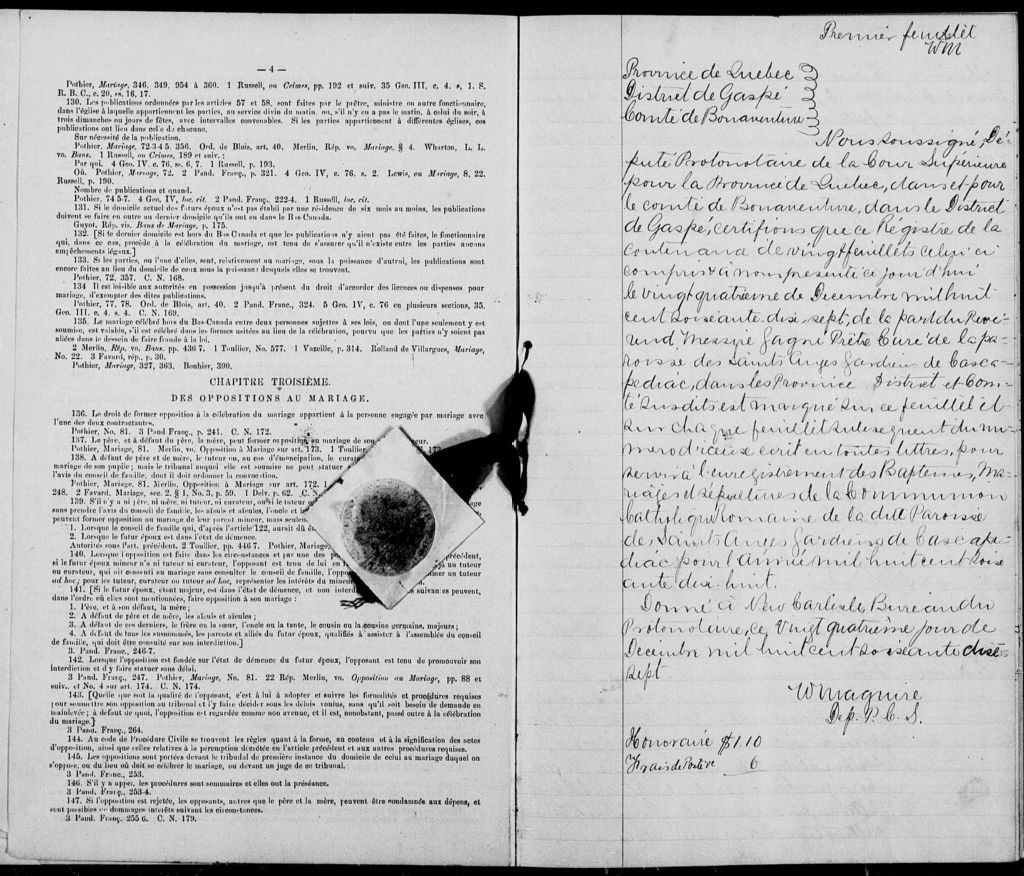 — 4 —
Pothier, Mariage, 346, 349, 954 à 360. 1 Russell, on Crimes, pp. 192 et suiv. 35 Geo. III, c. 4. s, 1. S.
R. B. C., c. 20, ss. 16, 17.
130. Les publications ordonnées par les articles 57 et 58, sont faites par le prêtre, ministre ou autre fonctionnaire,
dans l'église à laquelle appartiennent les parties, au service divin du matin, ou, s'il n'y en a pas le matin, à celui du soir, à
trois dimanches ou jours de fêtes, avec intervalles convenables. Si les parties appartiennent à différentes églises, ces
publications ont lieu dans celle de chacune.
Sur nécessité de la publication.
Pothier, Mariage, 72-3-4 5. 356. Ord. de Blois, art. 40. Merlin, Rép. vo. Mariage, § 4. Wharton, L. L.
vo. Bans. 1 Russell, on Crimes, 189 et suiv. :
Par qui. 4 Geo. IV. c. 76, ss. 6, 7. 1 Russell, p. 193.
Où. Pothier, Mariage, 72. 2 Pand. Franç., p. 321. 4 Geo. IV, c. 76, s. 2. Lewis, on Mariage, 8, 22.
Russell, p. 190.
Nombre de publications et quand.
Pothier, 74 5-7. 4 Geo. IV, loc. cit. 2 Pand. Franç., 222-4. 1 Russell, loc. cit.
131. Si le domicile actuel des futurs époux n'est pas établi par une résidence de six mois au moins, les publications
doivent se faire en outre au dernier domicile qu'ils ont eu dans le Bas Canada.
Guyot. Rép. vis. Bans de Mariage, p. 175.
132. [Si le dernier domicile est hors du Bas Canada et que les publications n'y aient pas été faites, le fonctionnaire
qui, dans ce cas, procède à la célébration du mariage, est tenu de s'assurer qu'il n'existe entre les parties aucuns
empêchements légaux.]
133. Si les parties, ou l'une d'elles, sont, relativement au mariage, sous la puissance d'autrui, les publications sont
encore faites au lieu du domicile de ceux sous la puissance desquels elles se trouvent.
Pothier, 72, 357. C. N. 168.
134 Il est loisible aux autorités en possession jusqu'à présent du droit d'accorder des licences ou dispenses pour
mariage, d'exempter des dites publications.
Pothier, 77, 78. Ord. de Blois, art. 40. 2 Pand. Franç., 324. 5 Geo. IV, c. 76 en plusieurs sections, 35.
Geo. III, c. 4, s. 4. C. N. 169.
135. Le mariage célébré hors du Bas-Canada entre deux personnes sujettes à ses lois, ou dont l'une seulement y est
soumise, est valable, s'il est célébré dans les formes usitées au lieu de la célébration, pourvu que les parties n'y soient pas
allées dans le dessein de faire fraude à la loi.
2 Merlin, Rép. vo. Bans, pp. 436 7. 1 Toullier, No. 577. 1 Vazeille, p. 314. Rolland de Villargues, Mariage,
No. 22. 3 Favard, rép., p. 30.
Pothier, Mariage, 327, 363. Bouhier, 390.
CHAPITRE TROISIÈME.
DES OPPOSITIONS AU MARIAGE.
136. Le droit de former opposition à la célébration du mariage appartient à la personne engagée par mariage avec
l'une des deux contractantes.
Pothier, No. 81. 3 Pand Franç., p. 241. C. N. 172.
137. Le père, et à défaut du père, la mère, peut former opposition au mariage de son
Pothier, Mariage, 81. Merlin, vo. Opposition à Mariage sur art. 173. 1 Toullier
138. A défaut de père et de mère, le tuteur ou, au cas d'émancipation, le curate
mariage de son pupile ; mais le tribunal auquel elle est soumise ne peut statuer
l'avis du conseil de famille, dont il doit ordonner la convocation.
Pothier, Mariage, 81. Merlin, Opposition à Mariage sur art. 172. 1
248. 2 Favard, Mariage, sec. 2, § 1, No. 3, p. 59. 1 Delv. p. 62. C. N.
139. S'il n'y a ni père, ni mère, ni tuteur, ni curateur, ou si le tuteur
sans prendre l'avis du conseil de famille, les aïeuls et aïeules, l'oncle et
peuvent former opposition au mariage de leur parent mineur, mais seulem
1. Lorsque le conseil de famille qui, d'après l'article 122, aurait dû
2. Lorsque le futur époux est dans l'état de démence.
Autorités sous l'art. précédent. 2 Toullier, pp. 446 7. Pothier, Mariage,
140. Lorsque l'opposition est faite dans les circonstances et par une des pe
si le futur époux mineur n'a ni tuteur ni curateur, l'opposant est tenu de lui en
ou curateur, qui ait consenti au mariage sans consulter le conseil de famille,
ad hoc ; pour les tuteur, curateur ou tuteur ad hoc, représenter les intérêts du mineur
141. [Si le futur époux, étant majeur, est dans l'état de démence, et non interd suivantes peuvent,
dans l'ordre où elles sont mentionnées, faire opposition à son mariage :
1. Père, et à son défaut, la mère ;
2. A défaut de père et de mère, les aïeuls et aïeules ;
3. A défaut de ces derniers, le frère ou la sœur, l'oncle ou la tante, le cousin ou la cousine germains, majeurs ;
4. A défaut de tous les susnommés, les parents et alliés du futur époux, qualifiés à assister à l'assemblée du conseil
de famille, qui doit être consulté sur son interdiction.]
3. Pand. Franç., 246-7.
142. Lorsque l'opposition est fondée sur l'état de démence du futur époux, l'opposant est tenu de promouvoir son
interdiction et d'y faire statuer sans délai.
3 Pand. Franç., 247. Pothier, Mariage, No. 81. 22 Rép. Merlin, vo. Opposition au Mariage, pp. 88 et
suiv., et No. 4 sur art. 174. C. N. 174.
143. [Quelle que soit la qualité de l'opposant, c'est à lui à adopter et suivre les formalités et procédures requises
pour soumettre son opposition au tribunal et l'y faire décider sous les délais voulus, sans qu'il soit besoin de demande en
mainlevée ; à défaut de quoi, l'opposition est regardée comme non avenue, et il est, nonobstant, passé outre à la célébration
du mariage.]
3 Pand. Franç., 264.
144. Au code de Procédure Civile se trouvent les règles quant à la forme, au contenu et à la signification des actes
d'opposition, ainsi que celles relatives à la péremption décrétée en l'article précédent et aux autres procédures requises.
145. Les oppositions sont portées devant le tribunal de première instance du domicile de celui au mariage duquel on
s'oppose, ou du lieu où doit se célébrer le mariage, ou devant un juge de ce tribunal.
3 Pand. Franç., 253.
146. S'il y a appel, les procédures sont sommaires et elles ont la préséance.
3 Pand. Franç., 253-4.
147. Si l'opposition est rejetée, les opposants, autres que le père et la mère, peuvent être condamnés aux dépens, et
sont passibles de dommages intérêts suivant les circonstances.
3 Pand. Franç. 255 6. C. N. 179.
Premier feuillet
WM
Province de Quebec
District de Gaspé
Comté de Bonaventure
Nous soussigné, Dé-
puté Protonotaire de la Cour Supérieure
pour la Province de Quebec, dans et pour
le comté de Bonaventure, dans le District
de Gaspé, certifions que ce Régistre de la
contenance de vingt feuillets celui ci
compris & a nous présenté ce jour d'hui
le vingt quatrième de Decembre mil huit
cent soixante dix sept, de la part du Reve-
rend Messyre Gagné Prêtre Curé de la pa-
roisse des Saints Anges Gardiens de Casca-
pediac, dans les Province District et Com-
té susdits est marqué sur ce feuillet et
sur chaque feuillet subsequent du nu-
mero d'iceux écrit en toutes lettres, pour
servir à l'enregistrement des Baptemes, Ma-
riages et Sépultures de la Communion
Catholique Romaine de la dite Paroisse
des Saints Anges Gardiens de Cascape-
diac pour l'Année mil huit cent soix-
ante dix-huit.
Donné à New Carlisle, Bureau du
Protonotaire, ce vingt quatrième jour de
Décembre mil huit cent soixante dix-
sept
W Maguire
Dep. P. C. S.
Honoraire $1.10
Frais de Poste 6